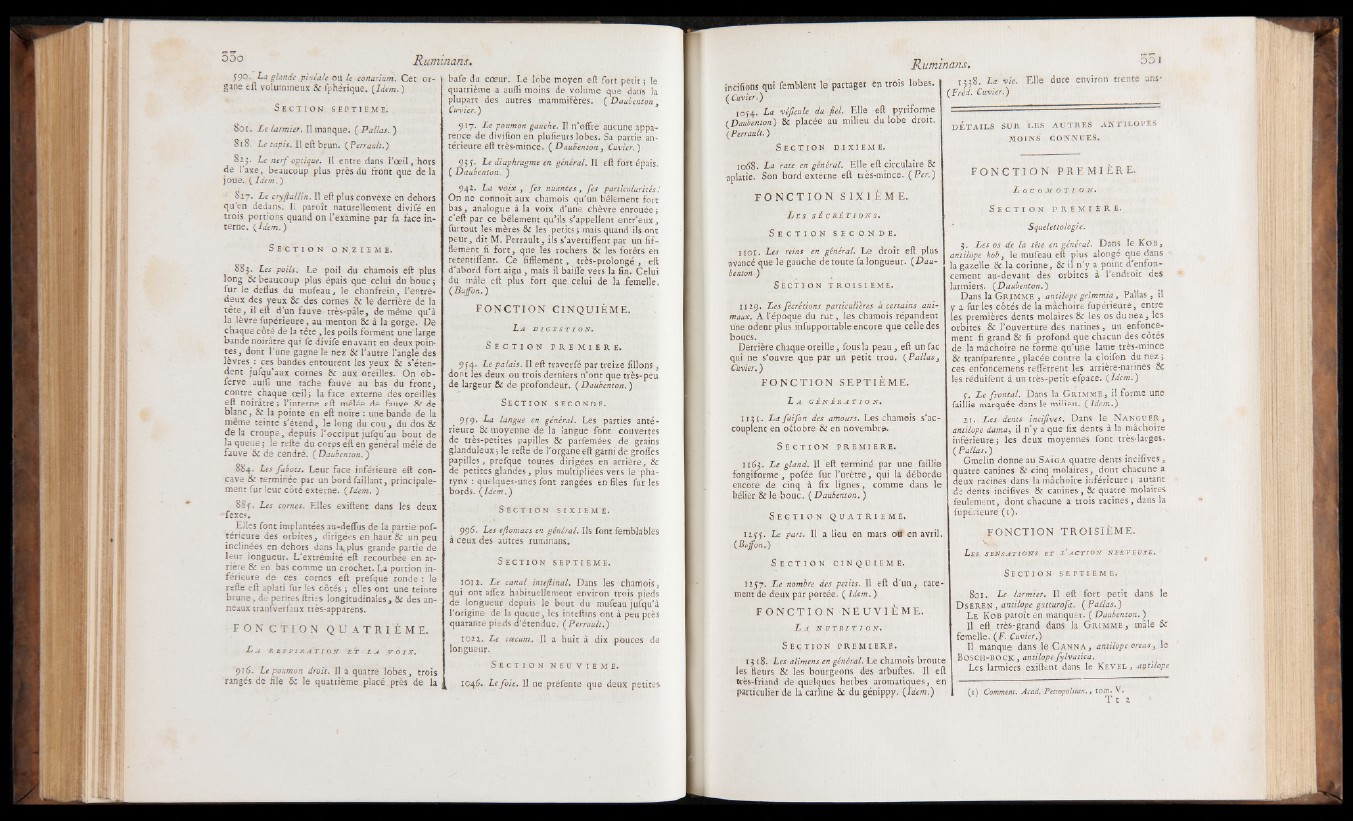 330
Ruminans.
590. La glande pinéale ou le conarium. Cet or-
gane est volumineux & sphérique. (Idem.)
SECTION SEPTIEME.
801. Le larmier. Il manque. (Pallas.)
818. Le tapis. Il est brun. (Perrault.)
823. Le nerf optique. Il entre dans l'œil, hors
de l'axe, beaucoup plus près du front que de la
joue. (Idem.)
827. Le crystallin. Il est plus convexe en dehors
qu'en dedans. Il paroît naturellement divisé en
trois portions quand on l'examine par sa face in-
terne. (Idem.)
SECTION ONZIEME.
883. Les poils. Le poil du chamois est plus
long & beaucoup plus épais que celui du bouc;
sur le dessus du museau, le chanfrein, l'entre-
deux des yeux & des cornes & le derrière de la
tête, il est d'un fauve très-pâle, de même qu'à
la lèvre supérieure, au menton & à la gorge. De
chaque côté de la tête, les poils forment une large
bande noirâtre qui se divise en avant en deux poin-
tes, dont l'une gagne le nez & l'autre l'angle des
lèvres : ces bandes entourent les yeux & s'éten-
dent jusqu'aux cornes & aux oreilles. On ob-
serve aussi une tache fauve au bas du front,
contre chaque œil; la face externe des oreilles
est noirâtre; l'interne est mêlée de fauve & de
blanc, & la pointe en est noire : une bande de la
même teinte s'étend, le long du cou, du dos &
de la croupe, depuis l'occiput jusqu'au bout de
la queue; le reste du corps est en général mêlé de
fauve & de cendré. (Daubenton.)
884. Les sabots. Leur face inférieure est con-
cave & terminée par un bord saillant, principale-
ment sur leur côté externe. (Idem.)
885. Les cornes. Elles existent dans les deux
sexes.
Elles sont implantées au-dessus de la partie pos-
térieure des orbites, dirigées en haut & un peu
inclinées en dehors dans la plus grande partie de
leur longueur. L'extrémité est recourbée en ar-
rière & en bas comme un crochet. La portion in-
férieure de ces cornes est presque ronde : le
reste est aplati sur les côtés; elles ont une teinte
brune, de petites stries longitudinales, & des an-
neaux transversaux très-apparens.
FONCTION QUATRIÈME.
LA RESPIRATION ET LA VOIX.
916. Le poumon droit. Il a quatre lobes, trois
rangés de file & le quatrième placé près de la
base du cœur. Le lobe moyen est fort petit; le
quatrième a aussi moins de volume que dans la
plupart des autres mammifères. (Daubenton,
Cuvier.)
917. Le poumon gauche. Il n'offre aucune appa-
rence de division en plusieurs lobes. Sa partie an-
térieure est très-mince. (Daubenton, Cuvier.)
935. Le diaphragme en général. Il est fort épais.
(Daubenton.)
942. La voix, ses nuances, ses particularités.
On ne connoît aux chamois qu'un bêlement fort
bas, analogue à la voix d'une chèvre enrouée;
c'est par ce bêlement qu'ils s'appellent entr'eux,
surtout les mères & les petits; mais quand ils ont
peur, dit M. Perrault, ils s'avertissent par un sif-
flement si fort, que les rochers & les forêts en
retentissent. Ce sifflement, très-prolongé, est
d'abord fort aigu, mais il baisse vers la fin. Celui
du mâle est plus fort que celui de la femelle.
(Buffon.)
FONCTION CINQUIÈME.
LA DIGESTION.
SECTION PREMIERE.
954. Le palais. Il est traversé par treize sillons,
dont les deux ou trois derniers n'ont que très-peu
de largeur & de profondeur. (Daubenton.)
SECTION SECONDE.
959. La langue en général. Les parties anté-
rieure & moyenne de la langue sont couvertes
de très-petites papilles & parsemées de grains
glanduleux; le reste de l'organe est garni de grosses
papilles, presque toutes dirigées en arrière, &
de petites glandes, plus multipliées vers le pha-
rynx : quelques-unes sont rangées en files sur les
bords. (Idem.)
SECTION SIXIEME.
996. Les estomacs en général. Ils sont semblables
à ceux des autres ruminans.
SECTION SEPTIEME.
1012. Le canal intestinal. Dans les chamois,
qui ont assez habituellement environ trois pieds
de longueur depuis le bout du museau jusqu'à
l'origine de la queue, les intestins ont à peu près
quarante pieds d'étendue. (Perrault.)
1022. Le cœcum. Il a huit à dix pouces de
longueur.
SECTION NEUVIEME.
1046. Le foie. Il ne présente que deux petites
Ruminans.
331
incisions qui semblent le partager en trois lobes.
(Cuvier.)
1054. La vésicule du fiel. Elle est pyriforme
(Daubenton) & placée au milieu du lobe droit.
(Perrault.)
SECTION DIXIEME.
1068. La rate en général. Elle est circulaire &
aplatie. Son bord externe est très-mince. (Per.)
FONCTION SIXIÈME.
LES SÉCRÉTIONS.
SECTION SECONDE.
1101. Les reins en général. Le droit est plus
avancé que le gauche de toute sa longueur. (Dau-
benton.)
SECTION TROISIEME.
1129. Les sécrétions particulières à certains ani-
maux. A l'époque du rut, les chamois répandent
une odeur plus insupportable encore que celle des
boucs.
Derrière chaque oreille, sous la peau, est un sac
qui ne s'ouvre que par un petit trou. (Pallas,
Cuvier.)
FONCTION SEPTIÈME.
LA GÉNÉRATION.
1135. La saison des amours. Les chamois s'ac-
couplent en octobre & en novembre.
SECTION PREMIERE.
1163. Le gland. Il est terminé par une saillie
fongiforme, posée sur l'urètre, qui la déborde
encore de cinq à six lignes, comme dans le
bélier & le bouc. (Daubenton.)
SECTION QUATRIEME.
1255. Le part. Il a lieu en mars ou en avril.
(Buffon.)
SECTION CINQUIEME.
1257. Le nombre des petits. Il est d'un, rare-
ment de deux par portée. (Idem.)
FONCTION NEUVIÈME.
LA NUTRITION.
SECTION PREMIERE.
1318. Les alimens en général. Le chamois broute
les fleurs & les bourgeons des arbustes. Il est
très-friand de quelques herbes aromatiques, en
particulier de la carline & du génippy. (Idem.)
1338. La vie. Elle dure environ trente ans.
(Fréd. Cuvier.)
DÉTAILS SUR LES AUTRES ANTILOPES
MOINS CONNUES.
FONCTION PREMIÈRE.
LOCOMOTION.
SECTION PREMIERE.
Squelettologie.
3. Les os de la tête en général. Dans le KOB,
antilope kob, le museau est plus alongé que dans
la gazelle & la corinne, & il n'y a point d'enfon-
cement au-devant des orbites à l'endroit des
larmiers. (Daubenton.)
Dans la GRIMME, antilope grimmia, Pallas, il
y a sur les côtés de la mâchoire supérieure, entre
les premières dents molaires & les os du nez, les
orbites & l'ouverture des narines, un enfonce-
ment si grand & si profond que chacun des côtés
de la mâchoire ne forme qu'une lame très-mince
& transparente, placée contre la cloison du nez;
ces enfoncemens resserrent les arrière-narines &
les réduisent à un très-petit espace. (Idem.)
5. Le frontal. Dans la GRIMME, il forme une
saillie marquée dans le milieu. (Idem.)
21. Les dents incisives. Dans le NANGUER,
antilope dama, il n'y a que six dents à la mâchoire
inférieure; les deux moyennes sont très-larges.
(Pallas.)
Gmelin donne au SAÏGA quatre dents incisives,
quatre canines & cinq molaires, dont chacune a
deux racines dans la mâchoire inférieure; autant
de dents incisives & canines, & quatre molaires
seulement, dont chacune a trois racines, dans la
supérieure (1).
FONCTION TROISIÈME.
LES SENSATIONS ET L'ACTION NERVEUSE.
SECTION SEPTIEME.
801. Le larmier. Il est fort petit dans le
DSEREN, antilope gutturosa. (Pallas.)
LE KOB paroît en manquer. (Daubenton.)
Il est très-grand dans la GRIMME, mâle &
femelle. (F. Cuvier.)
Il manque dans le CANNA, antilope oreas, le
BOSCH-BOCK, antilope sylvatica.
Les larmiers existent dans le KEVEL, antilope
(1) Comment. Acad. Petropolitan., tom. V.
Tt 2